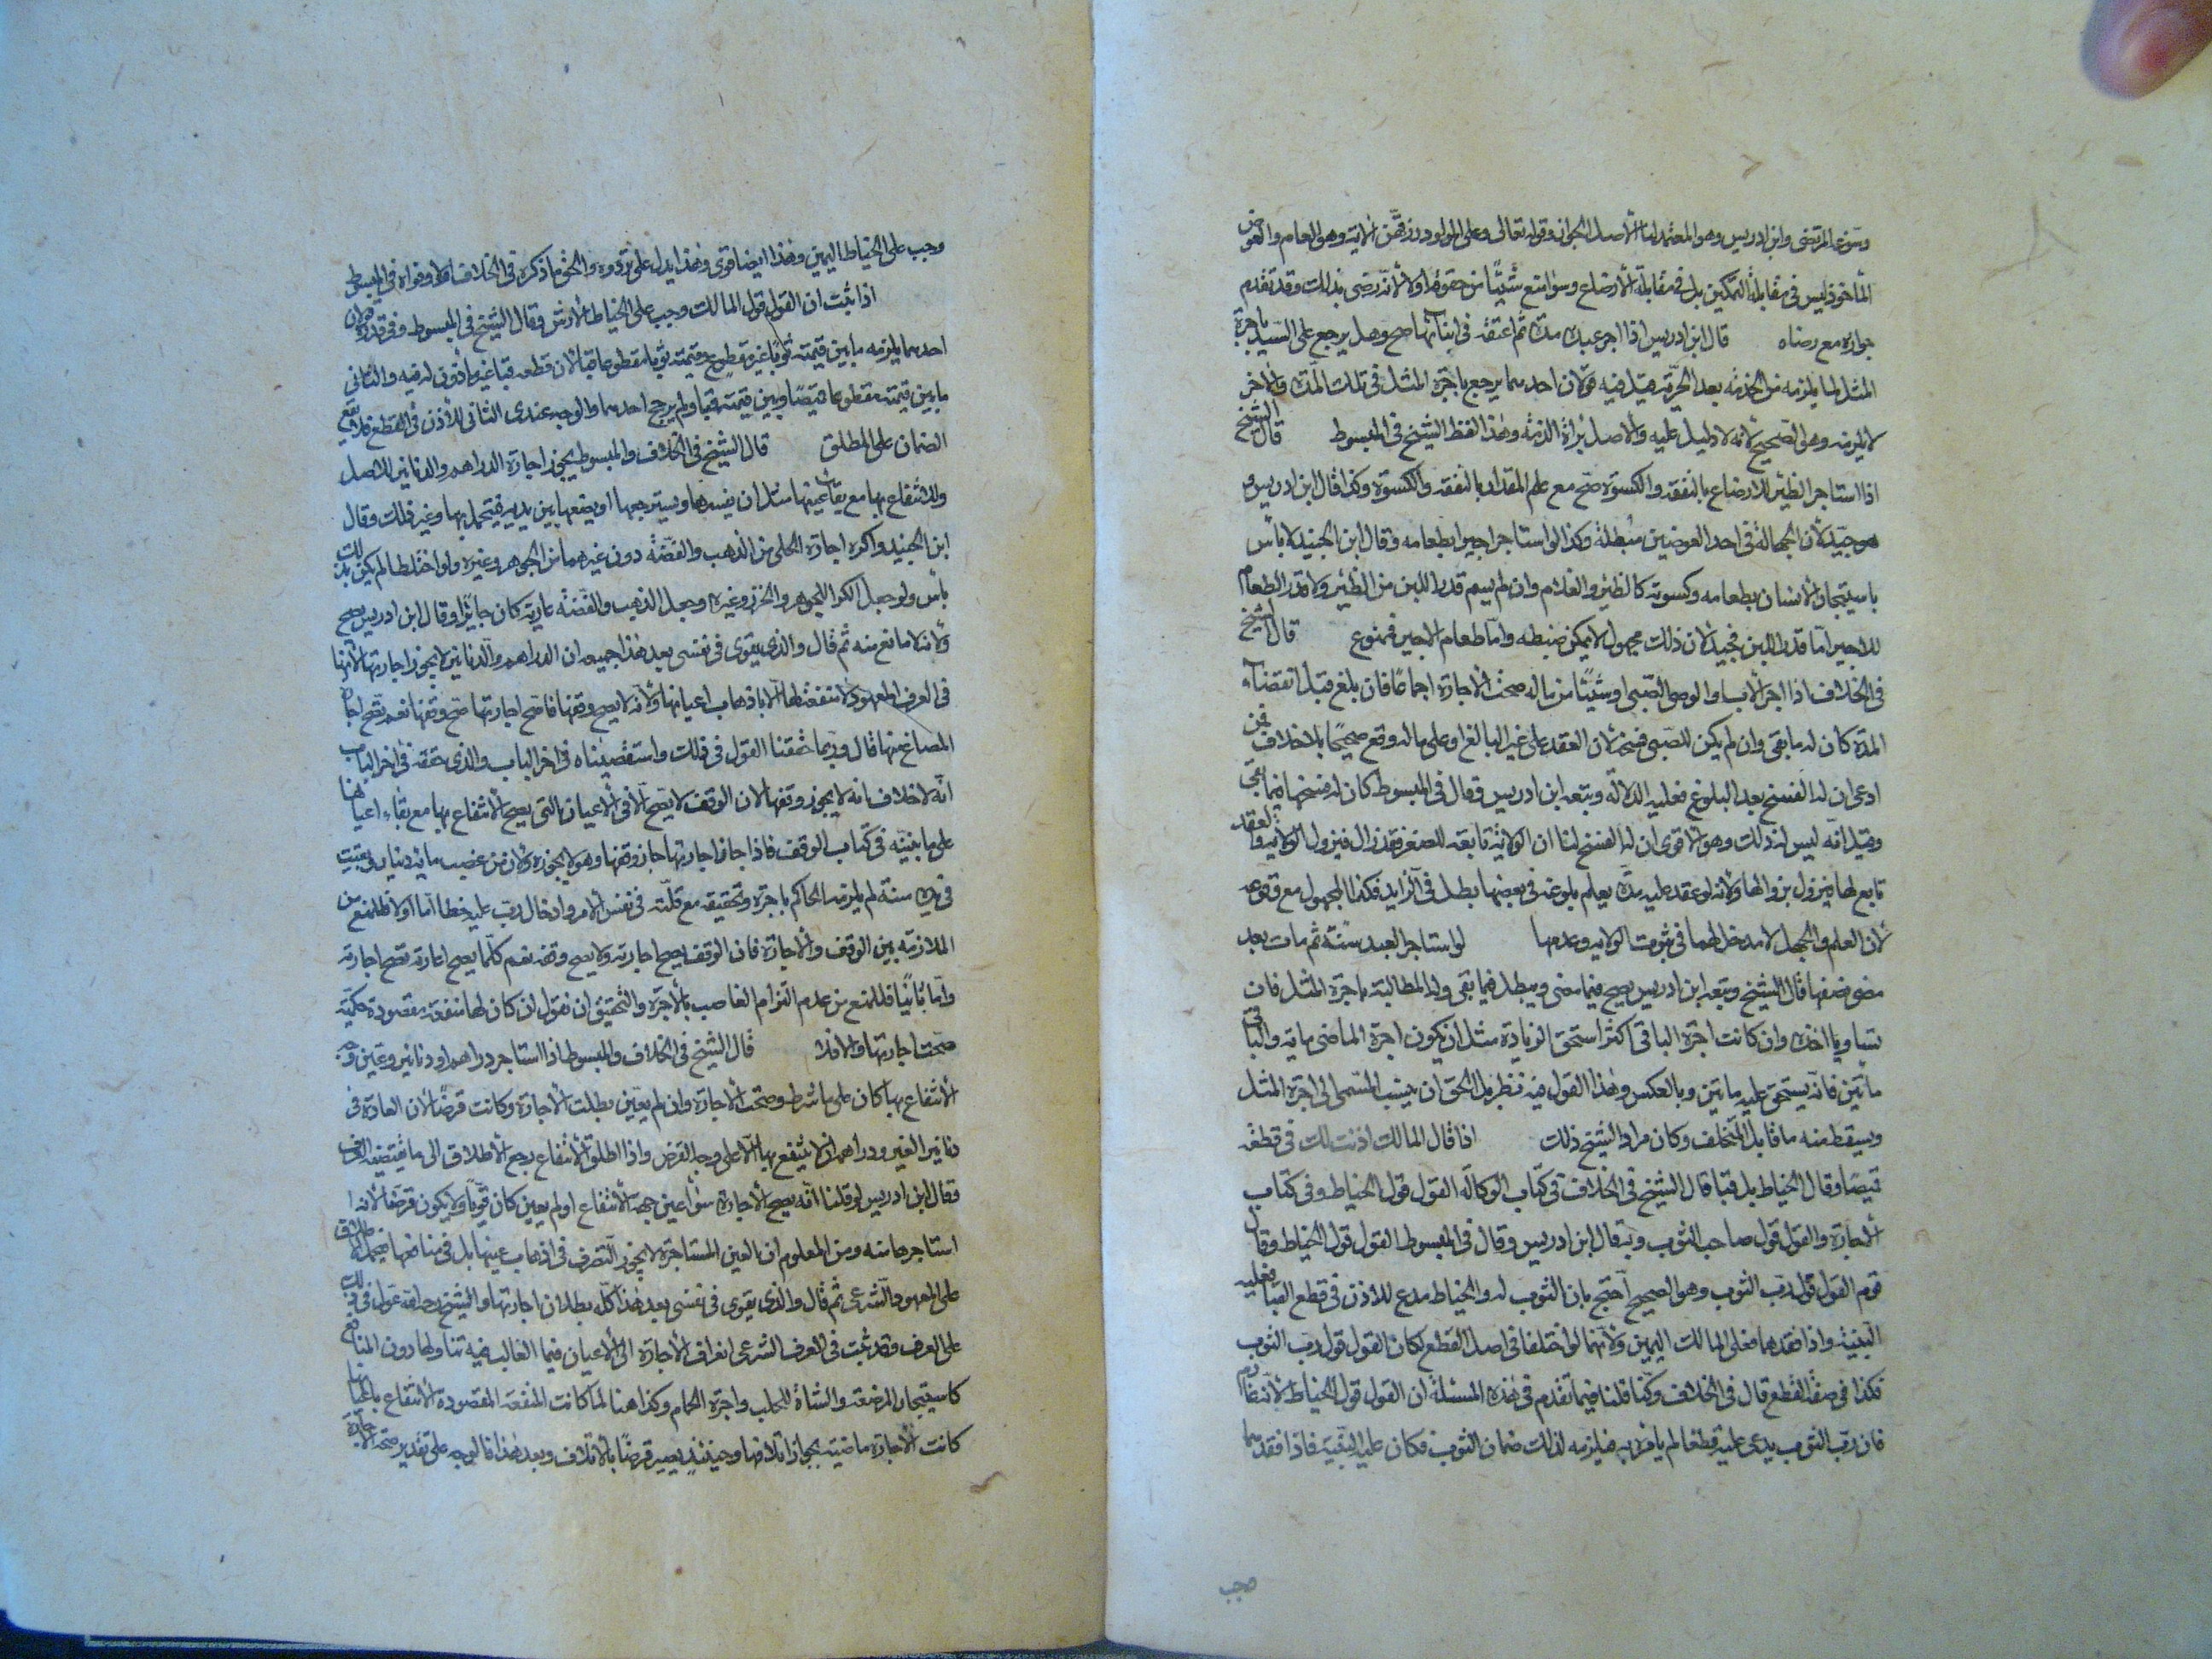 وسوغه المرتضى وابن ادريس وهو المعتمد لنا الأصل الجواز وقوله تعالى وعلى المولود له رزقهن الآية وهو العام والعوض
المأخوذ ليس في مقابلة التمكين بل في مقابلة الارضاع وسواء منع شيئا من حقوقه اولا لأنه رضى بذلك وقد تقدم
جوازه مع رضاه قال ابن ادريس اذا اجر عبده مدة ثم اعتقه في اثنائها صح وهل يرجع على السيد باجرة
المثل لما يلزمه من الخدمة بعد الحرية قيل فيه قولان احدهما يرجع باجرة المثل في تلك المدة والاخر
لا يلزمه وهو الصحيح لانه لا دليل عليه والاصل براءة الذمة وهذا لفظ الشيخ في المبسوط قال الشيخ
اذا استاجر الظئر للارضاع بالنفقة والكسوة صح مع علم المقدار بالنفقة والكسوة وكذا قال ابن ادريس
هو جيد لان الجهالة في احد العوضين مبطلة وكذا لو استاجر اجيرا بطعامه وقال ابن الجنيد لا بأس
باستيجار الانسان بطعامه وكسوته كالظئر والغلام وان لم يسم قدر اللبن من الظئر ولا قدر الطعام
للاجير اما قدر اللبن فجيد لان ذلك مجهول لا يمكن ضبطه واما طعام الاجير فممنوع قال الشيخ
في الخلاف اذا اجر الاب او الوصى الصبى او شيئا من ماله صحت الاجارة اجماعا فان بلغ قبل انقضاء
المدة كان له ما بقى وان لم يكن للصبى فسخه لان العقد على غير البالغ او على ماله وقع صحيحا بلا خلاف فمن
ادعى ان له الفسخ بعد البلوغ فعليه الدلالة وتبعه ابن ادريس وقال في المبسوط كان له فسخها فيما بقى
وقيل انه ليس له ذلك وهو الاقوى ان له الفسخ لنا ان الولاية تابعة للصغر فقد زال فيزول الولاية والعقد
تابع لها فيزول بزوالها ولانه لو عقد عليه مدة يعلم بلوغه في بعضها بطل في الزايد فكذا المجهول مع وقوعه
لان العلم والجهل لا مدخل لهما في ثبوت الولاية وعدمها لو استاجر العبد سنة ثم مات بعد
مضى نصفها قال الشيخ وتبعه ابن ادريس يصح فيما مضى ويبطل فيما بقى وله المطالبة باجرة المثل فان
تساويا اخذه وان كانت اجرة الباقى اكثر استحق الزيادة مثل ان يكون اجرة الماضى مائة والباقى
مأتين فانه يستحق عليه ماتين وبالعكس وهذا القول فيه نظر بل الحق ان ينسب المسمى الى اجرة المثل
ويسقط منه ما قابل المتخلف وكان مراد الشيخ ذلك اذا قال المالك اذنت لك في قطعه
قميصا وقال الخياط بل قبا قال الشيخ في الخلاف في كتاب الوكالة القول قول الخياط وفي كتاب
الاجارة والقول قول صاحب الثوب وبه قال ابن ادريس وقال في المبسوط القول قول الخياط وقال
قوم القول قول رب الثوب وهو الصحيح احتج بان الثوب له والخياط مدع للاذن في قطع القبا فعليه
البينة واذا فقدها فعلى المالك اليمين ولانهما لو اختلفا في اصل القطع لكان القول قول رب الثوب
فكذا في صفة القطع قال في الخلاف وكنا قلنا فيما تقدم في هذه المسئلة ان القول قول الخياط لانه غارم
فان رب الثوب يدعى عليه قطعا لم يامره به فيلزمه لذلك ضمان الثوب فكان عليه البينة فاذا فقدهما
وجب على الخياط اليمين وهذا ايضا قوى وهذا يدل على تردده والحق ما ذكره في الخلاف اولا وقواه في المبسوط
اذا ثبت ان القول قول المالك وجب على الخياط الارش وقال الشيخ في المبسوط وفى قدره قولان
احدهما يلزمه ما بين قيمته ثوبا غير مقطوع وقيمته ثوبا مقطوعا قبا لان قطعه قبا غير ماذون له فيه والثانى
ما بين قيمته مقطوعا قميصا وبين قيمته قبا ولم يرجح احدهما والوجه عندى الثانى للاذن في القطع فلا يقع
الضمان على المطلق قال الشيخ في الخلاف والمبسوط يجوز اجارة الدراهم والدنانير للاصل
وللانتفاع بها مع بقاء عينها مثل ان يفسدها ويسترجعها او يضعها بين يديه فيتجمل بها وغير ذلك وقال
ابن الجنيد واكره اجارة الحلى من الذهب والفضة دون غيرهما من الجوهر وغيره ولو اختلطا لم يكن بذلك
بأس ولو جعل الكرا للجوهر والخرز وغيره وجعل الذهب والفضة عارية كان جايزا وقال ابن ادريس يصح
ولانه لا مانع منه ثم قال والذى يقوى في نفسى بعد هذا جميعه ان الدراهم والدنانير لا يجوز اجارتها لانها
في العرف المعهود لا منفعة لها الا باذهاب اعيانها ولانه لا يصح وقفها فلو صح اجارتها صح وقفها نعم يصح اجارة
المصاغ منها قال وربما حققنا القول في ذلك واستقصيناه في اخر الباب والذى حققه في اخر الباب
انه لا خلاف انه لا يجوز وقفها لان الوقف لا يصح الا في الاعيان التى يصح الانتفاع بها مع بقاء اعيانها
على ما بينته في كتاب الوقف فاذا جاز اجارتها جاز وقفها وهو لا يجوزه ولان من غصب مائة دينار وبقيت
في يده سنة لم يلزمه الحاكم باجرة وتحقيقه مع قلته في نفس الامر وادخال رب عليه خطا اما اولا فللمنع من
الملازمة بين الوقف والاجارة فان الوقف يصح اجارته ولا يصح وقفه نعم كلما يصح اعارته تصح اجارته
واما ثانيا فللمنع من عدم الزام الغاصب بالاجرة والتحقيق ان نقول ان كان لها منفعة مقصودة حكمية
صحت اجارتها والا فلا قال الشيخ في الخلاف والمبسوط اذا استاجر دراهم او دنانير وعين وجه
الانتفاع بها كان على ما شرط وصحت الاجارة وان لم يعين بطلت الاجارة وكانت قرضا لان العادة في
دنانير الغير ودراهمه ان لا ينتفع بها الا على وجه القرض واذا اطلق الانتفاع رجع الاطلاق الى ما يقتضيه العرف
وقال ابن ادريس لو قلنا انه يصح الاجارة سواء عين جهة الانتفاع او لم يعين كان قويا ولا يكون قرضا لانه
استاجرها منه ومن المعلوم ان العين المستاجرة لا يجوز التصرف في اذهاب عينها بل في منافعها فيحمل الاطلاق
على المعهود الشرعى ثم قال والذى يقوى في نفسى بعد هذا كله بطلان اجارتها والشيخ رحمه الله عول في ذلك
على العرف وقد ثبت في العرف الشرعى انصراف الاجارة الى الاعيان فيما الغالب فيه تناولها دون المنافع
كاستيجار المرضعة والشاة للحلب واجرة الحمام وكذا هنا لما كانت المنفعة المقصودة الانتفاع باعيانها
كانت الاجارة ماضية بجواز اتلافها وحينئذ يصير قرضا بالاتلاف وبعد هذا فالوجه على تقدير صحة الاجارة